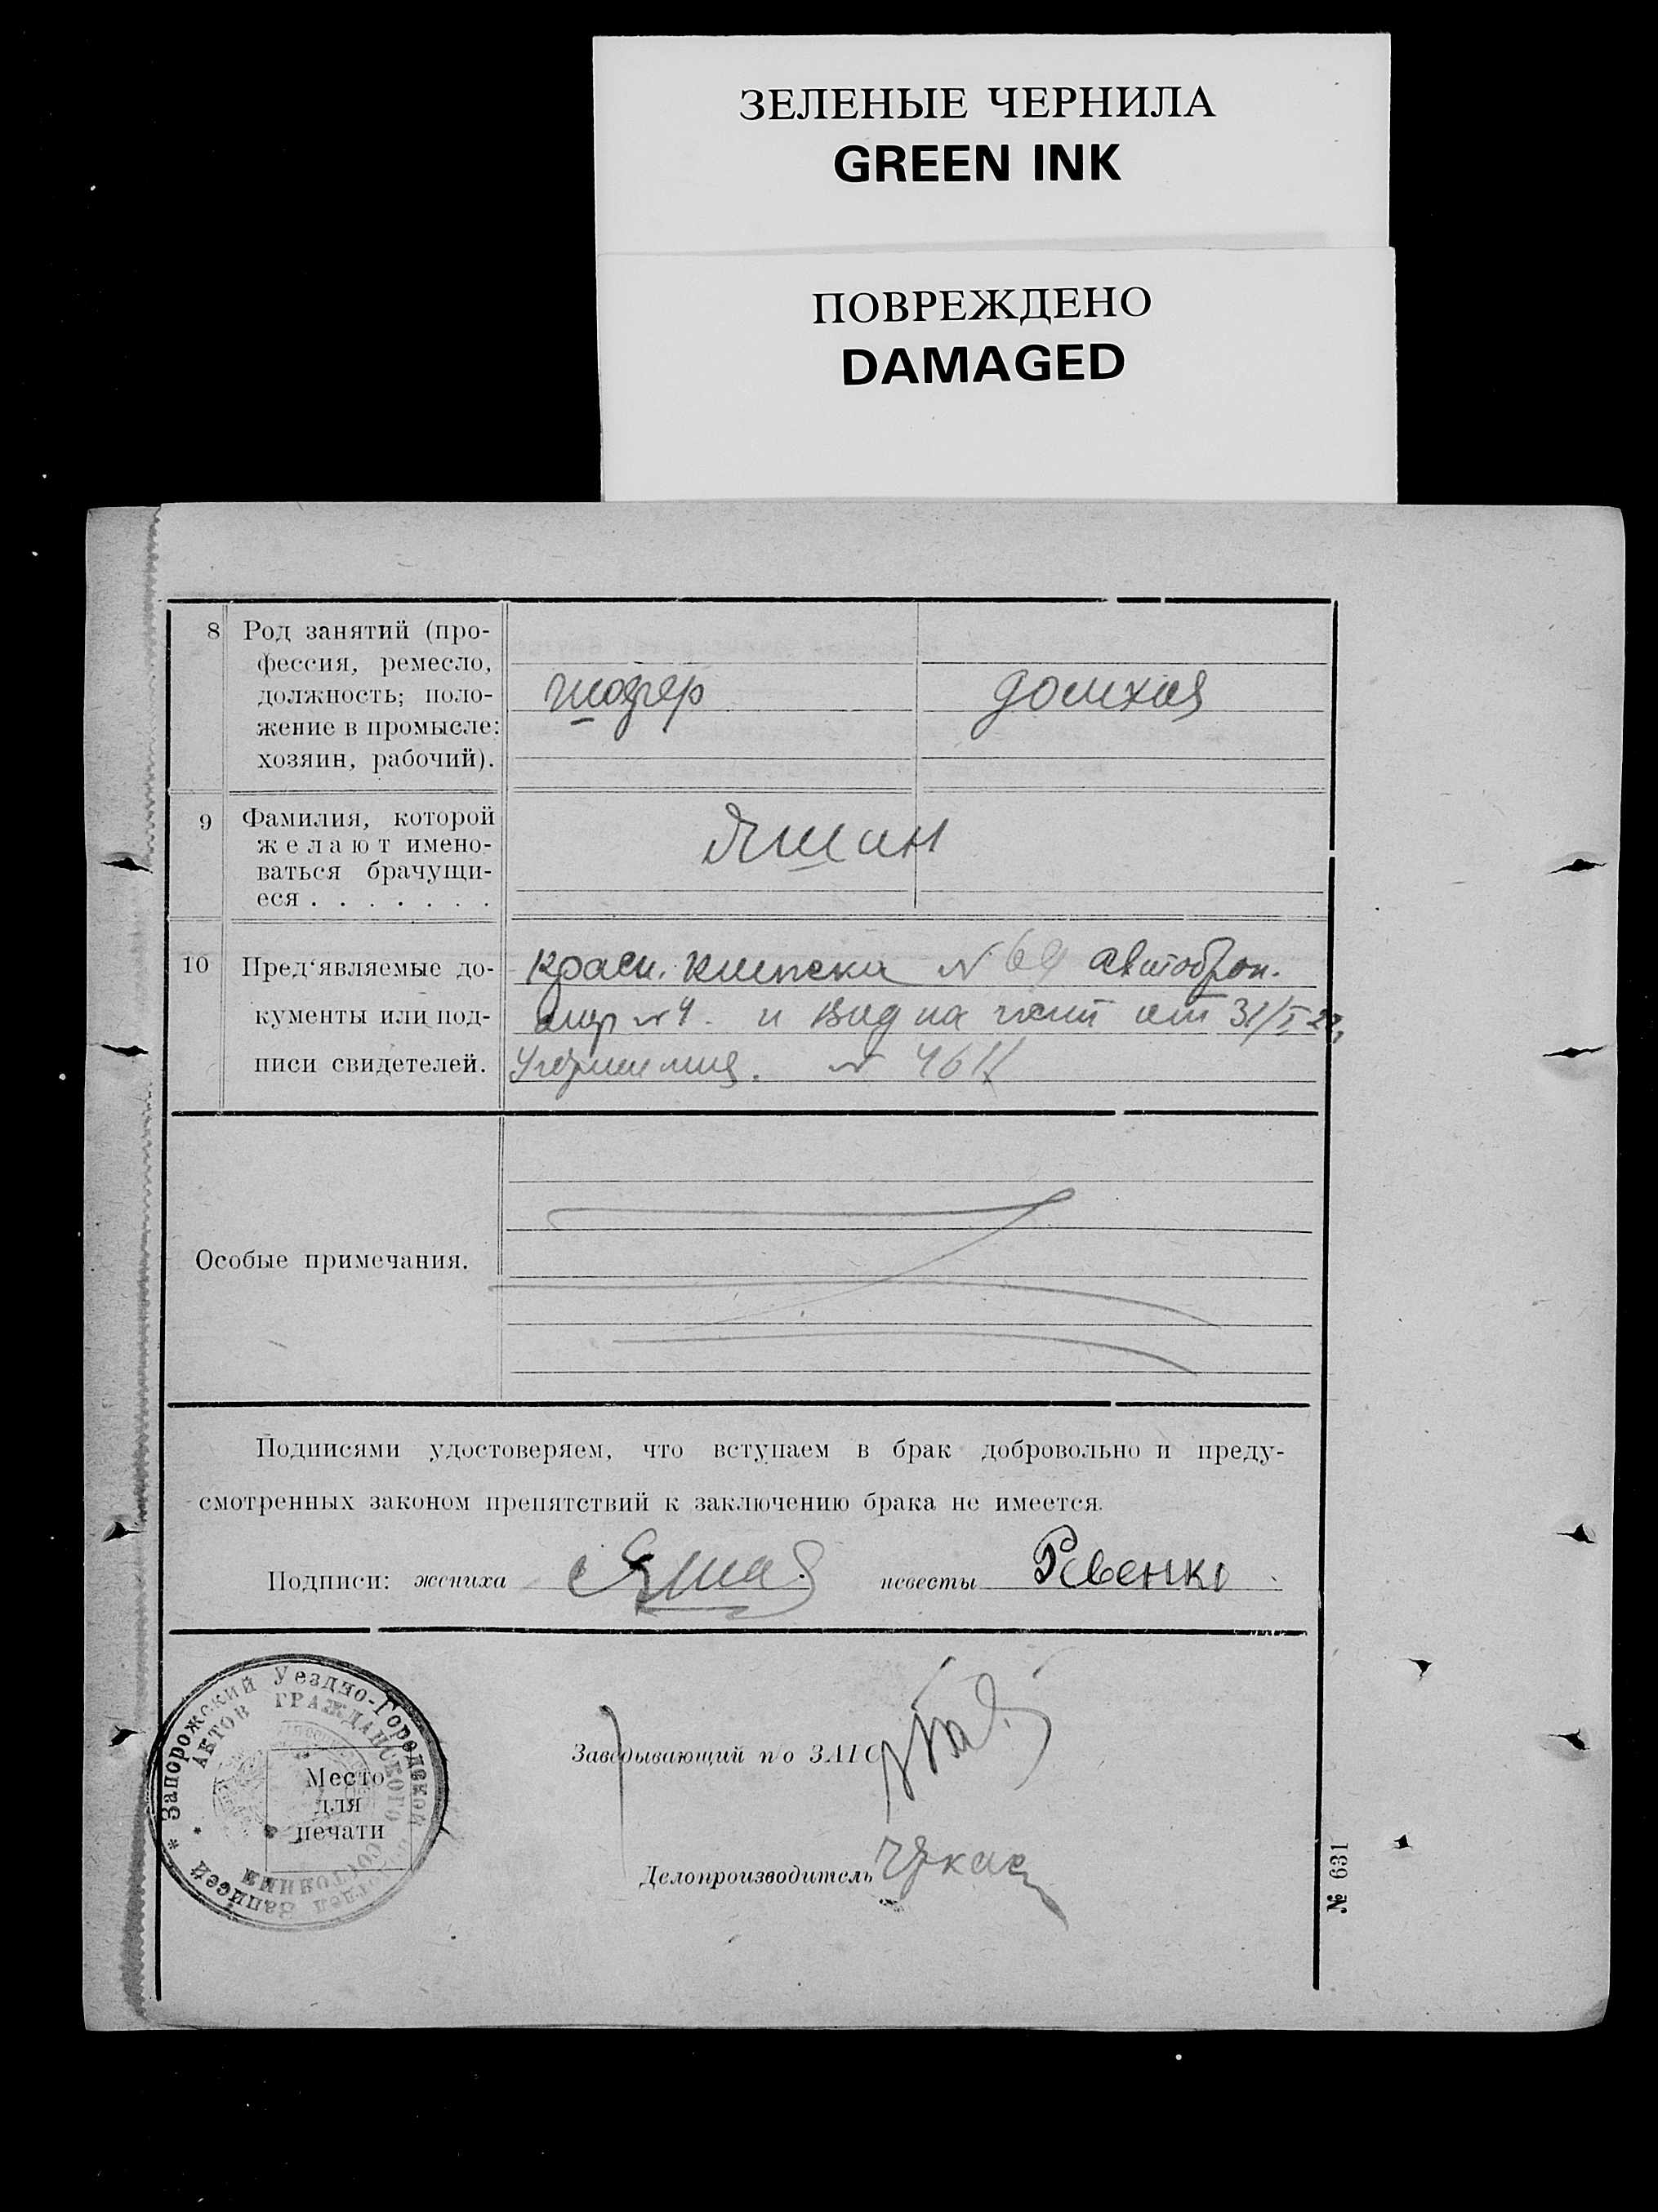 ЗЕЛЕНЫЕ ЧЕРНИЛА
GREEN INK
ПОВРЕЖДЕНО
DAMAGED
8 Род занятий (про-
фессия, ремесло,
должность; поло-
жение в промысле:
хозяин, рабочий).
шофер домхоз
9 Фамилия, которой
желают имено-
ваться брачущи-
еся . . . . . . .
Яшин
10 Пред‘являемые до-
кументы или под-
писи свидетелей.
Красн. книжка № 69 автоброн.
№ 4. и вид на жит от 31/I 23
№ 4611
Особые примечания.
Подписями удостоверяем, что вступаем в брак добровольно и преду-
смотренных законом препятствий к заключению брака не имеется.
Подписи: жениха невесты Ревенко
Запорожский Уездно-Городской п/отдел Записей
АКТОВ ГРАЖДАНСКОГО СОСТОЯНИЯ
Место
для
печати
Заведывающий п/о ЗАГС
Делопроизводитель
№ 631